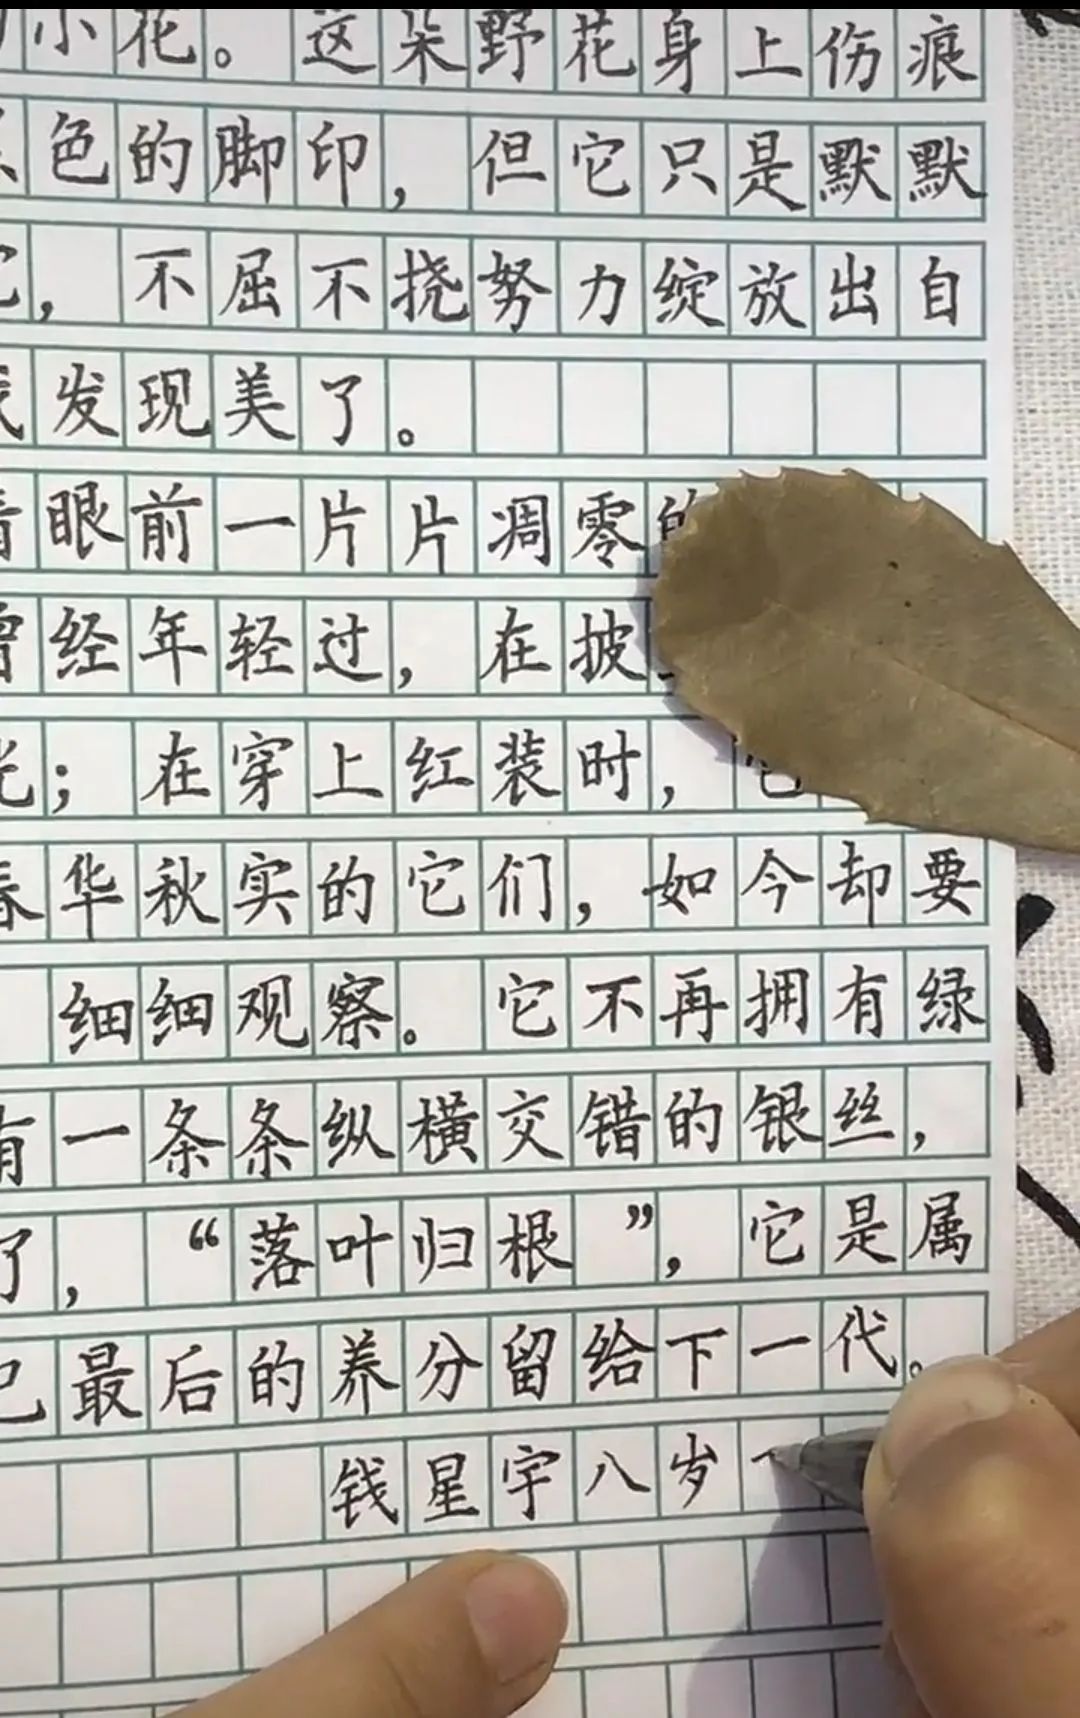 小花。这朵野花身上伤痕
色的脚印，但它只是默默
，不屈不挠努力绽放出自
发现美了。
眼前一片片凋零的
经年轻过，在披
；在穿上红装时，它
春华秋实的它们，如今却要
细细观察。它不再拥有绿
有一条条纵横交错的银丝，
了，“落叶归根”，它是属
己最后的养分留给下一代。
钱星宇八岁